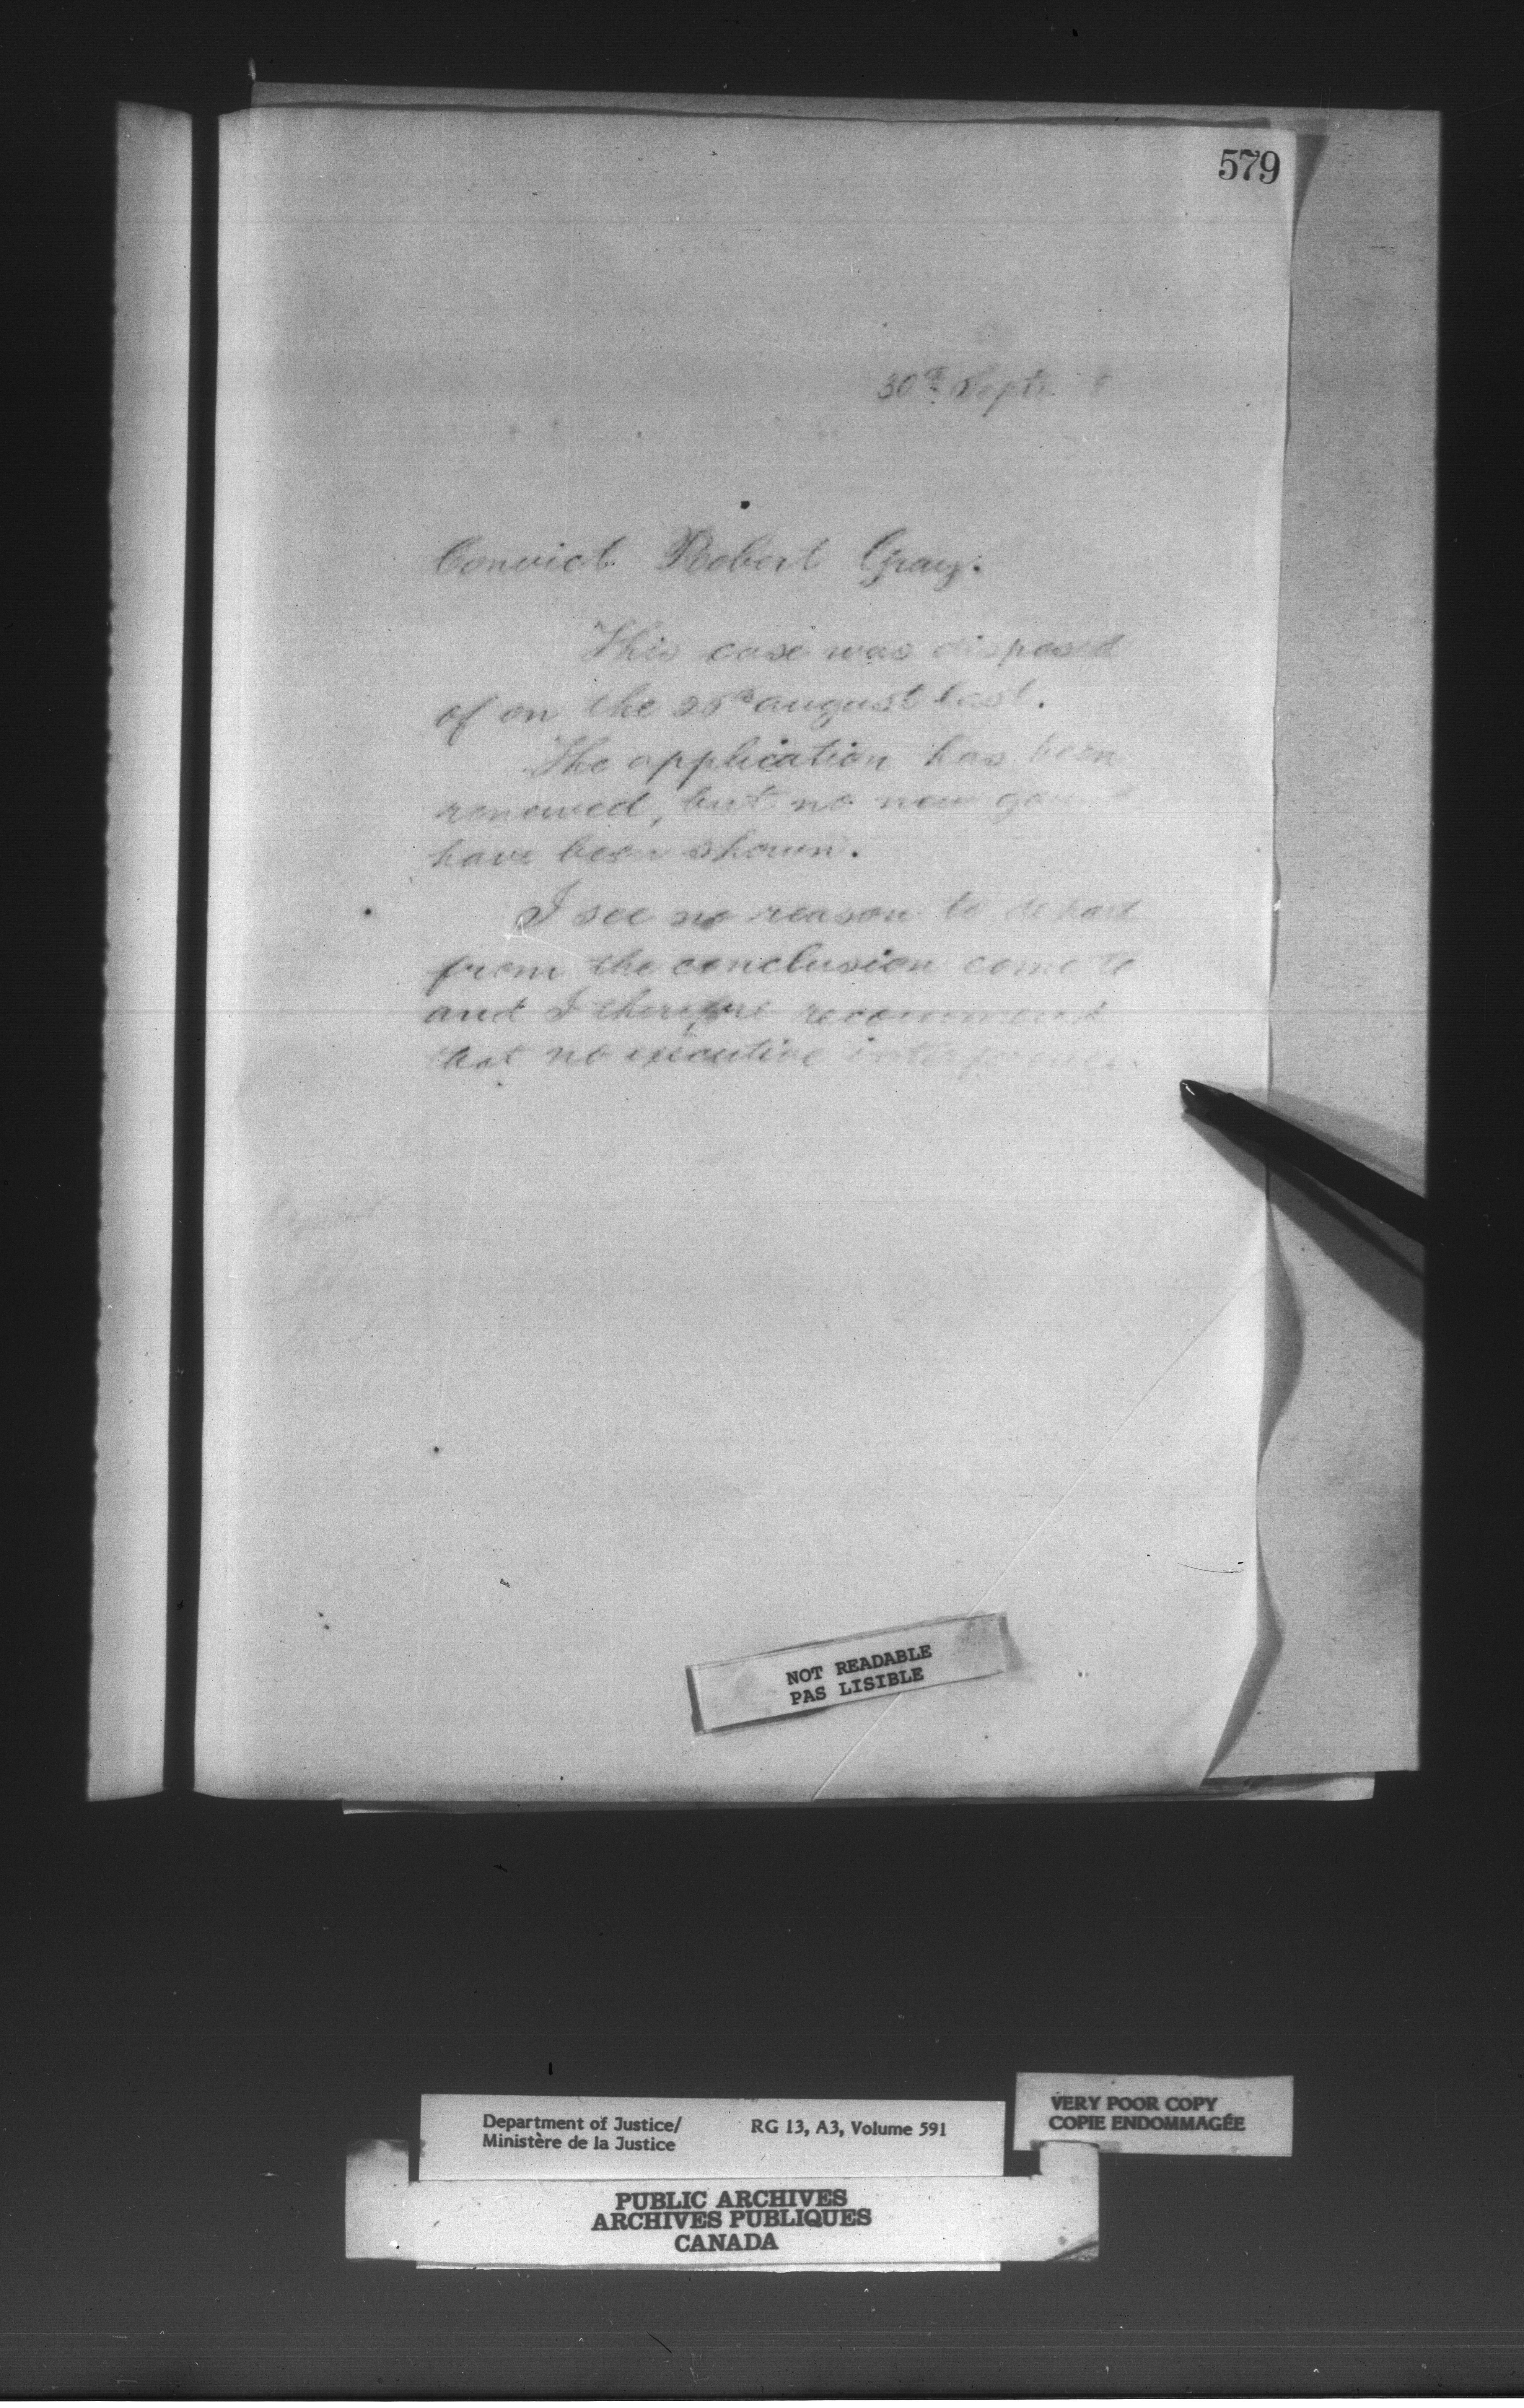 579
30th Septr
Convict Robert Gray.
This case was disposed
of on the 26th august last.
The application has been
renewed, but no new
have been shown.
I see no reason to depart
from the conclusion come to
and I therefore recommend
that no executive interference.
NOT READABLE
PAS LISIBLE
Department of Justice/ RG 13, A3, Volume 591
Ministère de la Justice
VERY POOR COPY
COPIE ENDOMMAGÉE
PUBLIC ARCHIVES
ARCHIVES PUBLIQUES
CANADA